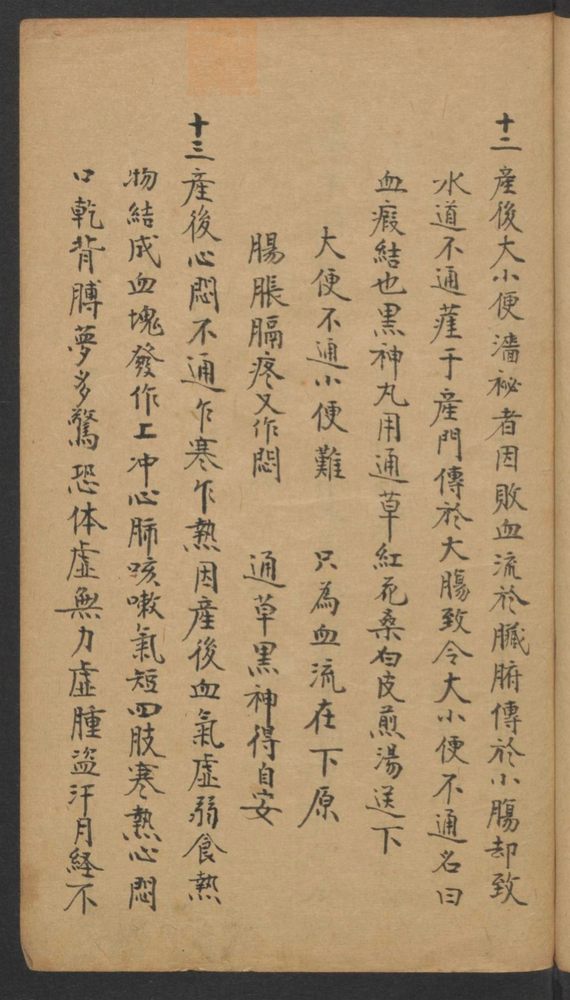 十二產後大小便濇祕者因敗血流於臟腑傳於小腸却致
水道不通蓷于產門傳於大腸致令大小便不通名曰
血瘕結也黑神丸用通草紅花桑白皮煎湯送下
大便不通小便難　只為血流在下原
腸脹膈疼又作悶　通草黑神得自安
十三產後心悶不通乍寒乍熱因產後血氣虛弱食熱
物結成血塊發作上冲心肺咳嗽氣短四肢寒熱心悶
口乾背膊夢多驚恐体虛無力虛腫盜汗月經不